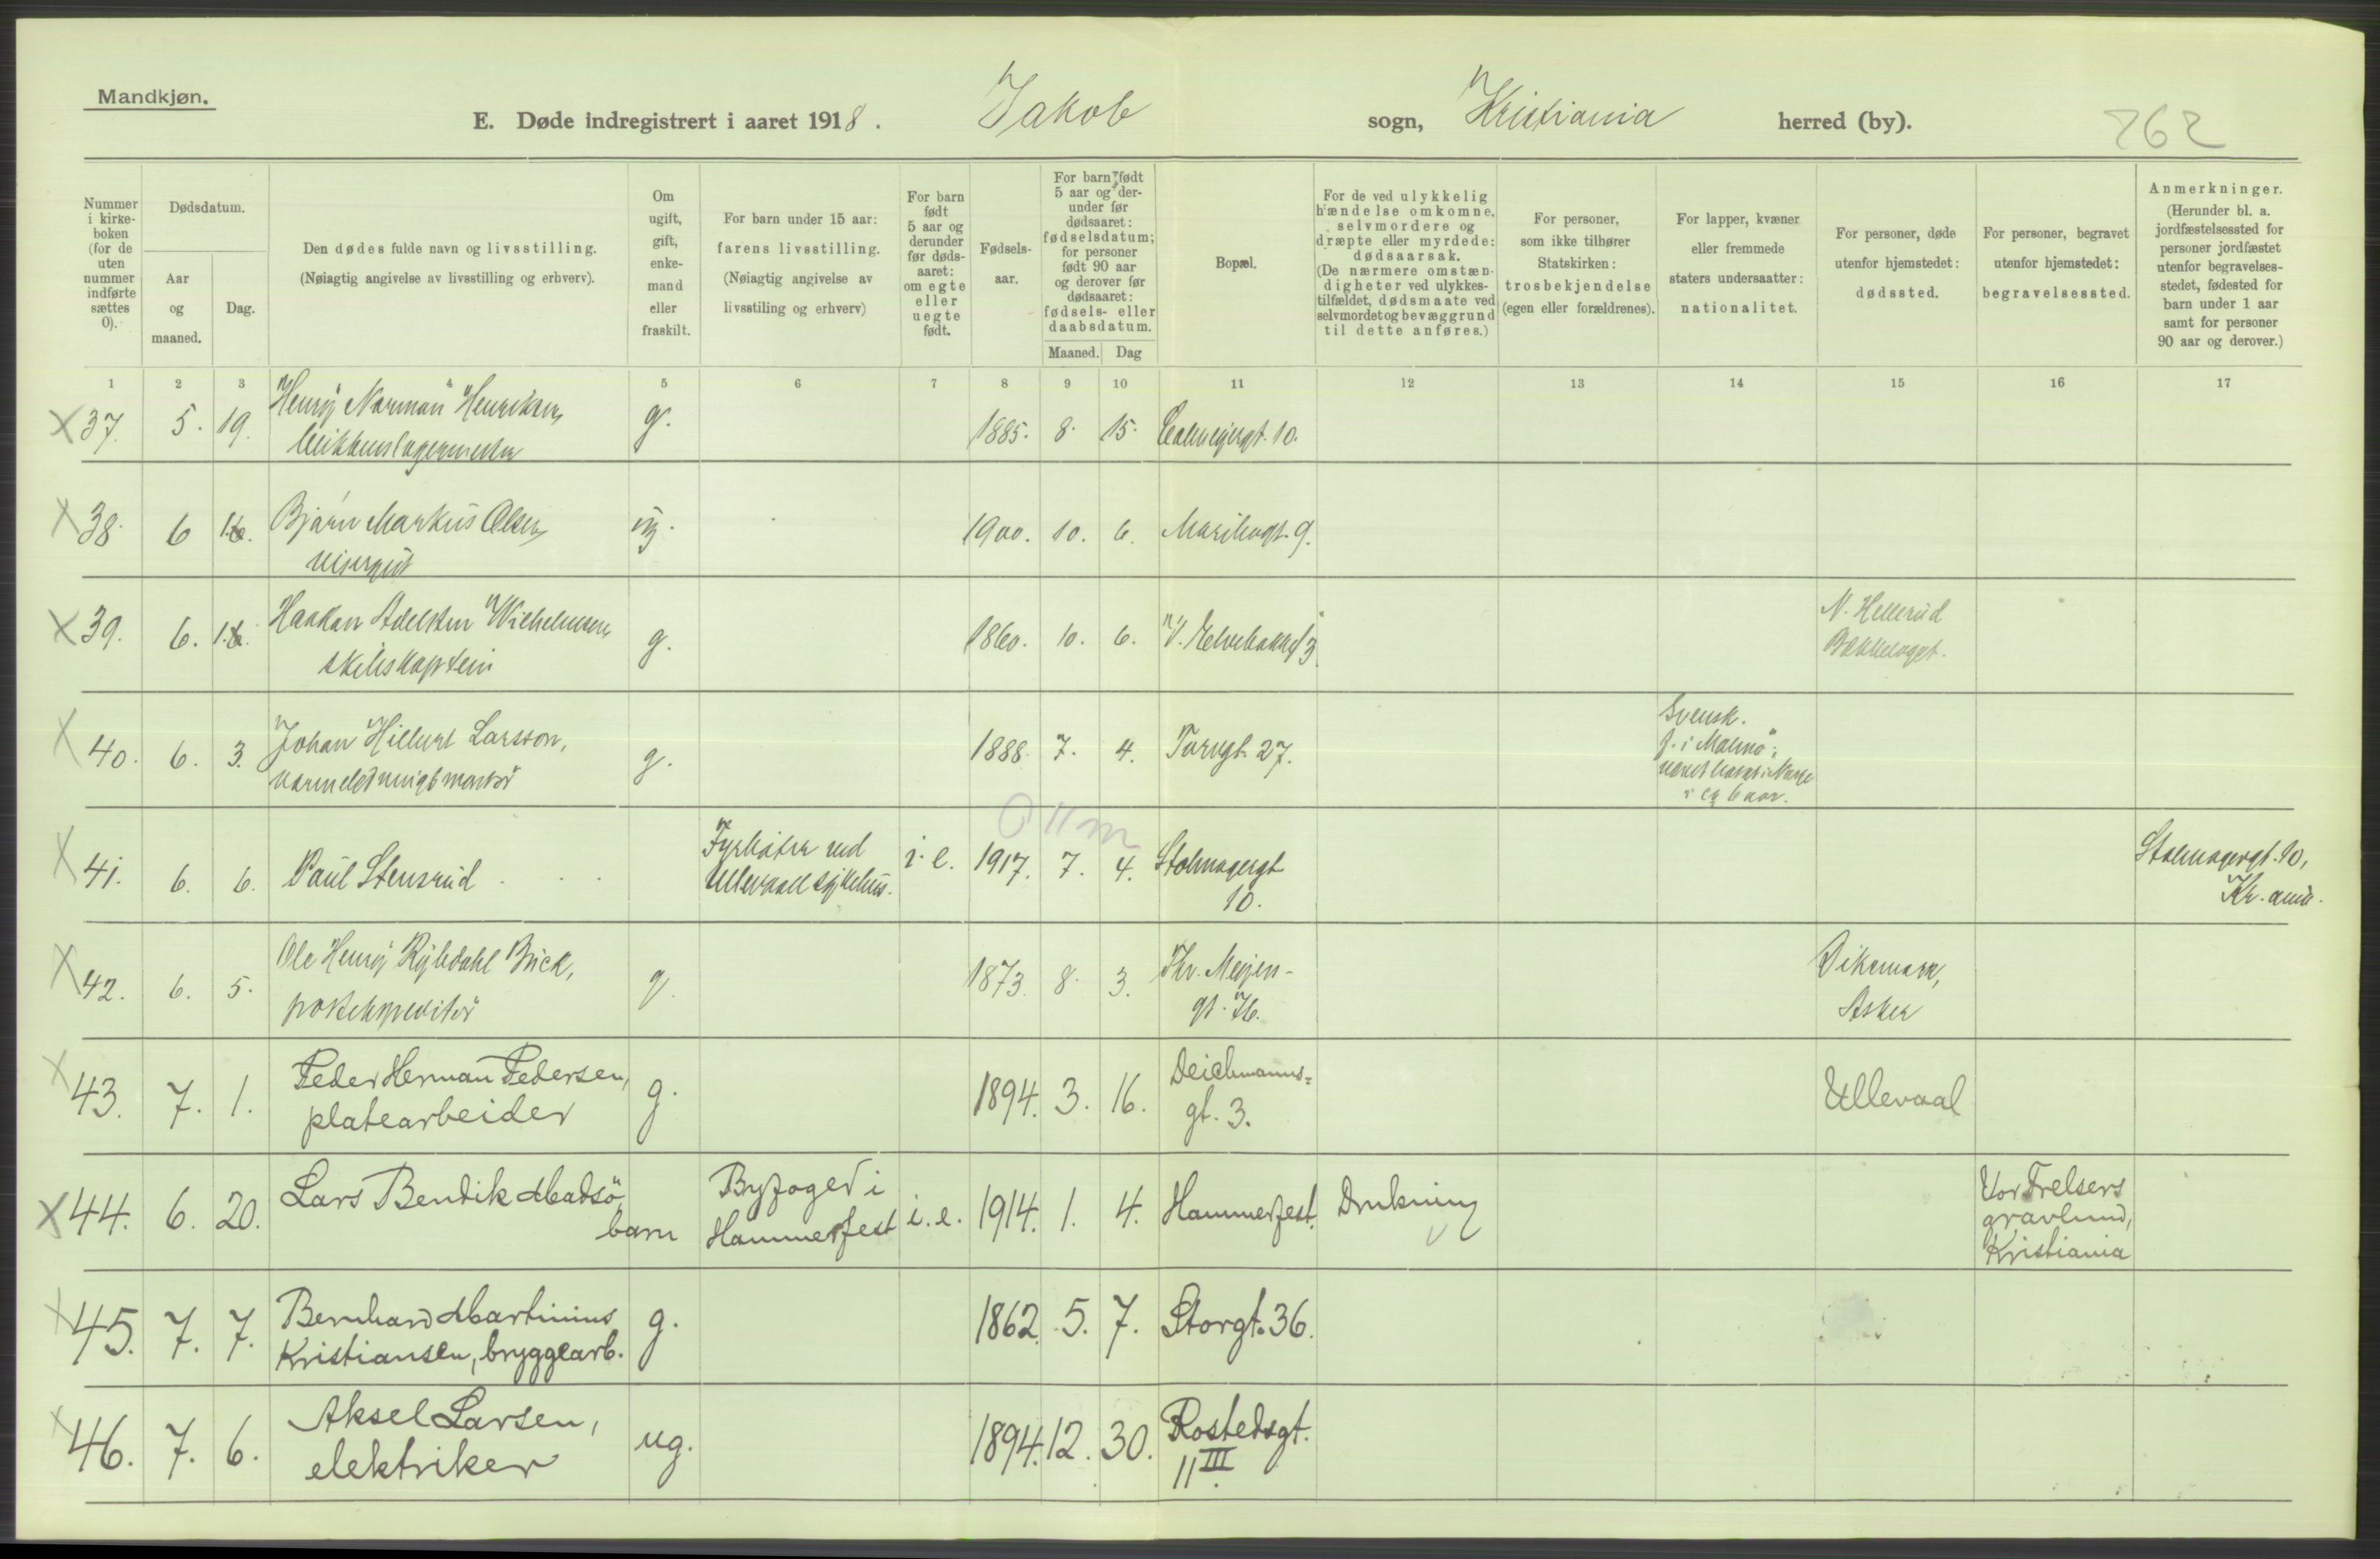 Mandkjøn.
E. Døde indregistrert i aaret 1918. Jakob sogn, Kristiania herred (by). 262
Nummer i kirkeboken (for de uten nummer indførte sættes 0).
Dødsdatum.
Aar og maaned.
Dag.
Den dødes fulde navn og livsstilling.
(Nøiagtig angivelse av livsstilling og erhverv).
Om ugift, gift, enkemand eller fraskilt.
For barn under 15 aar: farens livsstilling.
(Nøiagtig angivelse av livsstiling og erhverv)
For barn født 5 aar og derunder før dødsaaret: om egte eller uegte født.
Fødselsaar.
For barn født 5 aar og derunder før dødsaaret: fødselsdatum; for personer født 90 aar og derover før dødsaaret: fødsels- eller daabsdatum.
Maaned. Dag
Bopæl.
For de ved ulykkelig hændelse omkomne, selvmordere og dræpte eller myrdede: dødsaarsak.
(De nærmere omstændigheter ved ulykkestilfældet, dødsmaate ved selvmordet og bevæggrund til dette anføres.)
For personer, som ikke tilhører Statskirken: trosbekjendelse (egen eller forældrenes).
For lapper, kvæner eller fremmede staters undersaatter: nationalitet.
For personer, døde utenfor hjemstedet: dødssted.
For personer, begravet utenfor hjemstedet: begravelsessted.
Anmerkninger.
(Herunder bl. a. jordfæstelsessted for personer jordfæstet utenfor begravelsesstedet, fødested for barn under 1 aar samt for personer 90 aar og derover.)
1 2 3 4 5 6 7 8 9 10 11 12 13 14 15 16 17
X 37. 5. 19. Henry Norman Henriksen, g. 1885. 8. 15. Calmeyergt. 10.
blikkenslagermester
X 38. 6 16. Bjørn Markus Olsen, ug. 1900. 10. 6. Maribogt. 9.
visergut
X 39. 6. 16. Haakon Adelsten Wilhelmsen, g. 1860. 10. 6. V. Elvebakke 3 N. Hellerud
skibskaptein Bækkelaget.
X 40. 6. 3. Johan Hillert Larsson, g. 1888. 7. 4. Torvgt. 27. Svensk.
varmeledningsmontør f. i Malmö;
været bosat i Norge
i ca 6 aar.
0 11 m
X 41. 6. 6. Paul Stensrud Fyrbøter ved i. e. 1917. 7. 4. Stolmagergt. Stolmagergt. 10,
Ullevaal sykehus. 10. Kr.ania.
X 42. 6. 5. Ole Henry Rybdahl Brick, g. 1873 8. 3. Thv. Meyers- Dikemark,
postekspeditør gt. 76. Asker
X 43. 7. 1. Peder Herman Pedersen, g. 1894. 3. 16. Deichmanns= Ullevaal
platearbeider gt. 3.
X 44. 6. 20. Lars Bendik Madsö, Byfoged i i. e. 1914. 1. 4. Hammerfest. Drukning Vor Frelsers
barn Hammerfest gravlund,
Kristiania
X 45. 7. 7. Bernhard Martinius g. 1862. 5. 7. Storgt. 36.
Kristiansen, bryggearb.
X 46. 7. 6. Aksel Larsen, ug. 1894. 12. 30. Rostedsgt.
elektriker 11 III.